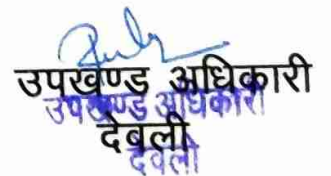 उपखण्ड अधिकारी
उपखण्ड अधिकारी
देवली
देवली